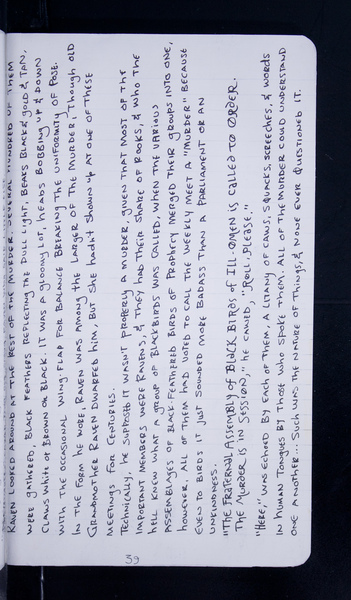 Raven looked around at the rest of the murder. Several hundred of them
were gathered, black feathers reflecting the dull light, beaks black & gold & tan,
claws white or brown or black. It was a gloomy lot, heads bobbing up & down
with the occasional wing-flap for balance breaking the uniformity of pose.
In the form he wore, Raven was among the larger of the murder, though old
Grandmother Raven dwarfed him, but she hadn't shown up at one of these
meetings for centuries.
Technically, he supposed it wasn't properly a murder, given that most of the
important members were ravens, & they had their share of rooks, & who the
hell knew what a group of blackbirds was called, when the various
assemblages of black-feathered birds of prophecy merged their groups into one,
however, all of them had voted to call the weekly meet a "murder" because
even to birds it just sounded more badass than a parliament or an
unkindness.
"The Fraternal Assembly of Black Birds of Ill-Omen is called to order.
The murder is in session," he cawed. "Roll, please."
"Here," was echoed by each of them, a litany of caws, squacks, screeches, & words
in human tongues by those who spoke them. All of the murder could understand
one another... such was the nature of things, & none ever questioned it.
39